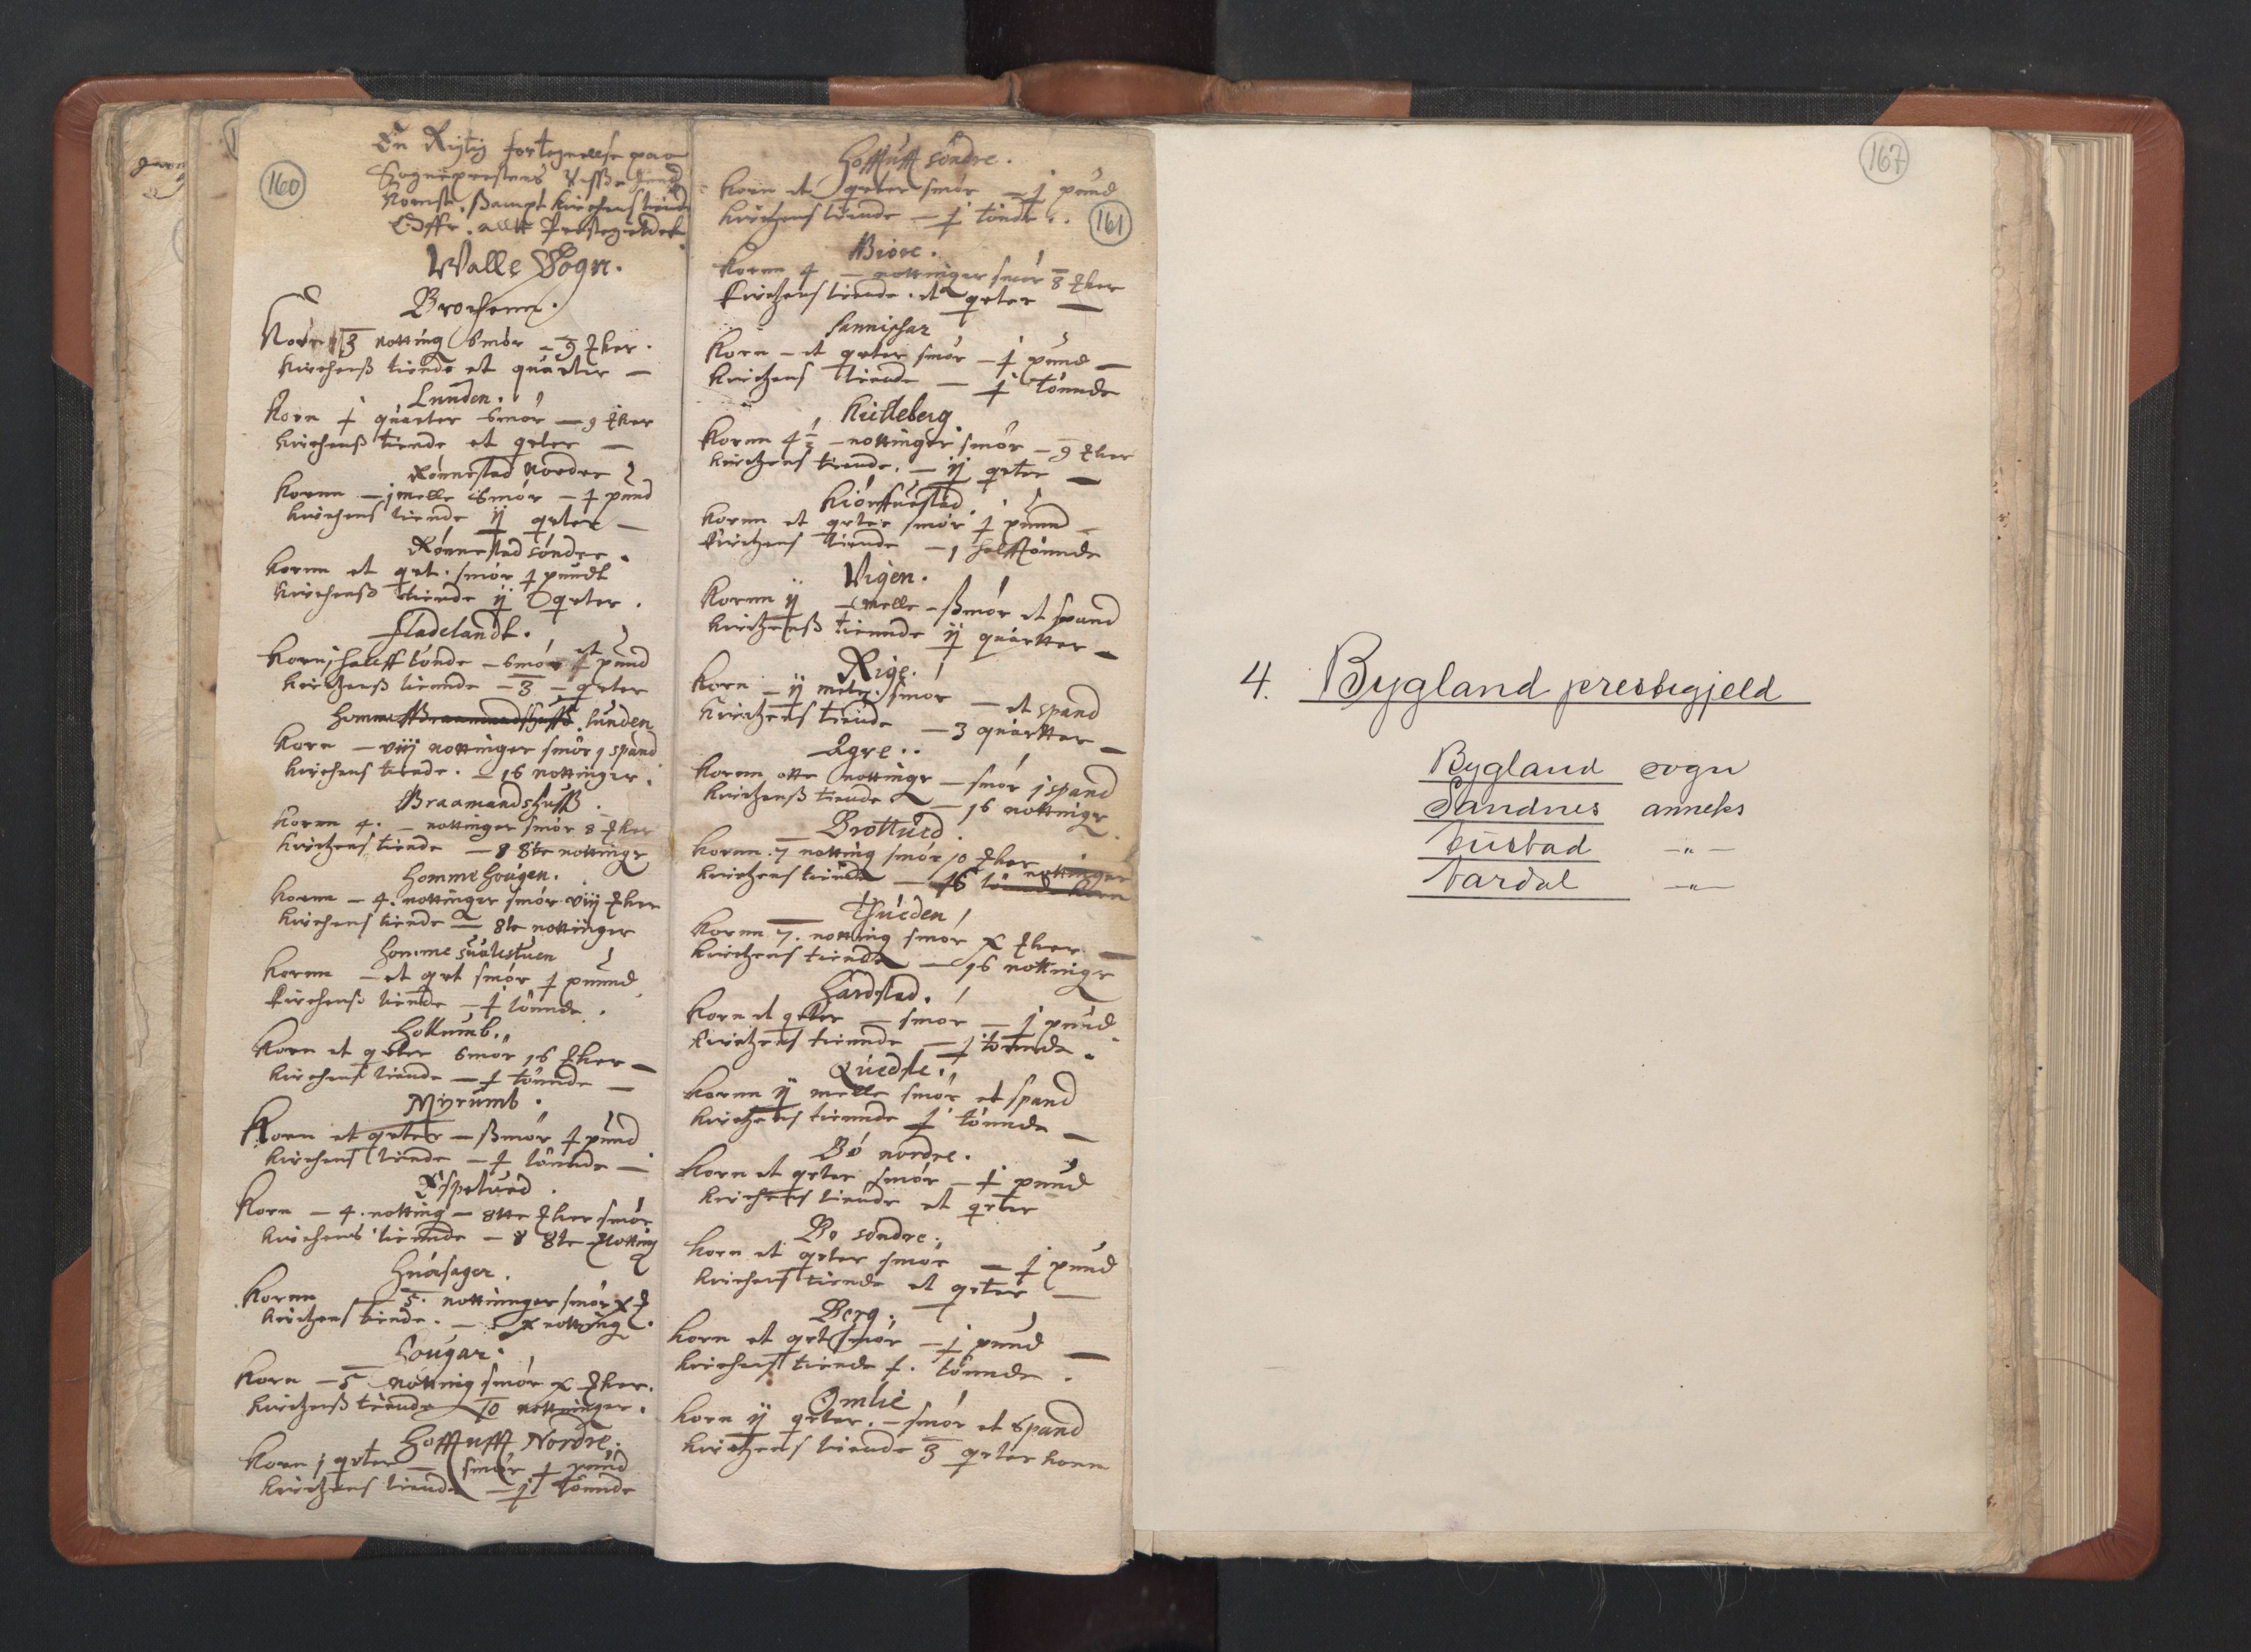 160
En Rigtig fortegnelse paa
Sogneprestens Visse tiende
Kornet, sampt kirchens tiende
offr. allt Prestegieldet.
Walle Sogn.
Brochem.
Korn 3 notting Smör – 9 ℔ker.
kirchenß tiende et quarter –
Lunden.
Korn j quarter Smör – 9 ℔ker
kirchenß tiende et qrter –
Rönnestad nordre
Kornn – j melle Smör – j pund
kirchens tiende ij qrter –
Rönnestad söndre.
Kornn et qrt. smör j pundt
kirchenß tiende ij qrter.
fladelandt.
Korn j halff tönde – Smör et pund
kirchenß tiennde – 3 – qrter
Homme lunden
Korn – viij nottinger smör j spand
kirchens tiende. – 16 nottinger.
Braamandshuß.
Kornn 4. – nottinger smör 8 ℔ker
kirchens tiende – 8 8te nottinger
Homme Hougen.
Kornn – 4. nottinger smör viij ℔ker
kirchens tiende – 8te nottinger
Homme sualestuen
Kornn – et qrt smör j puund
kirchenß tiende – j tönnde.
Hollumb.
Korn et qrter Smör 16 ℔ker –
kirchens tiende – j tönnde –
Myrumb.
Korn et qrter – ßmör j pund
kirchens tiende – j tönnde –
Espetued.
Korn – 4. notting – 8tte ℔ker smör
kirchens tiennde – 8 8te notting
Huasager.
Kornn 5. nottinnger smör x ℔
kirchens tiende. – x notting.
Hougar.
Korn – 5 notting smör x ℔ker.
kirchenß tiende 10 nottinger.
Hoffuff Nordre.
Korn j qrter – smör j pund
kirchens tiende – j tönnde
161
Hoffuff söndre.
Korn et qrter smör – j pund
kirchens tiende – j tönde.
Biöre.
Kornn 4 – nottinger smör 8 ℔ker
kirchens tiende. et qrter –
Hannishar
Korn – et qrter smör – j pund –
kirchens tiende – j tönnde
Kulteberg.
Kornn 4 ½ – nottinger smör – 9 ℔ker
kirchens tiende. – ij qrter –
Kiörffuestad.
Kornn et qrter smör j puund –
kirchens tiende – 1 halff tönnde
Vigen.
Kornn ij – melle – ßmör et spand
kirchenß tiennde ij quartter –
Rige.
Korn – ij meler. smör – et spand
kirchens tiende – 3 quartter –
Agre.
Kornn otte nottinger – smör j spand
kirchenß tiende – 16 nottinger
Brottued.
Kornn 7 notting smör 10 ℔ker
kirchens tiende – 16 nottinger
tönnde korn
Thueden
Kornn 7. notting smör x ℔ker –
kirchens tiende – 16 nottinger
Hardstad.
Korn et qrter – smör – j pund
kirchens tiennde – j tönnde.
Quedste.
Kornn ij melle smör et spand
kirchens tiennde j tönnde –
Bö nordre.
Korn et qrter smör – j pund
kirchens tiende et qrter
Bö söndre.
Korn et qrter smör – j pund
kirchens tiende et qrter –
Berg.
Korn et qrt smör – j pund –
kirchens tiende j. tönnde.
Omlie
Korn ij qrter. – smör et Spand
kirchens tiende 3 qrter korn
167
4. Bygland prestegjeld
Bygland sogn
Sandnes anneks
Austad –"–
Aardal –"–